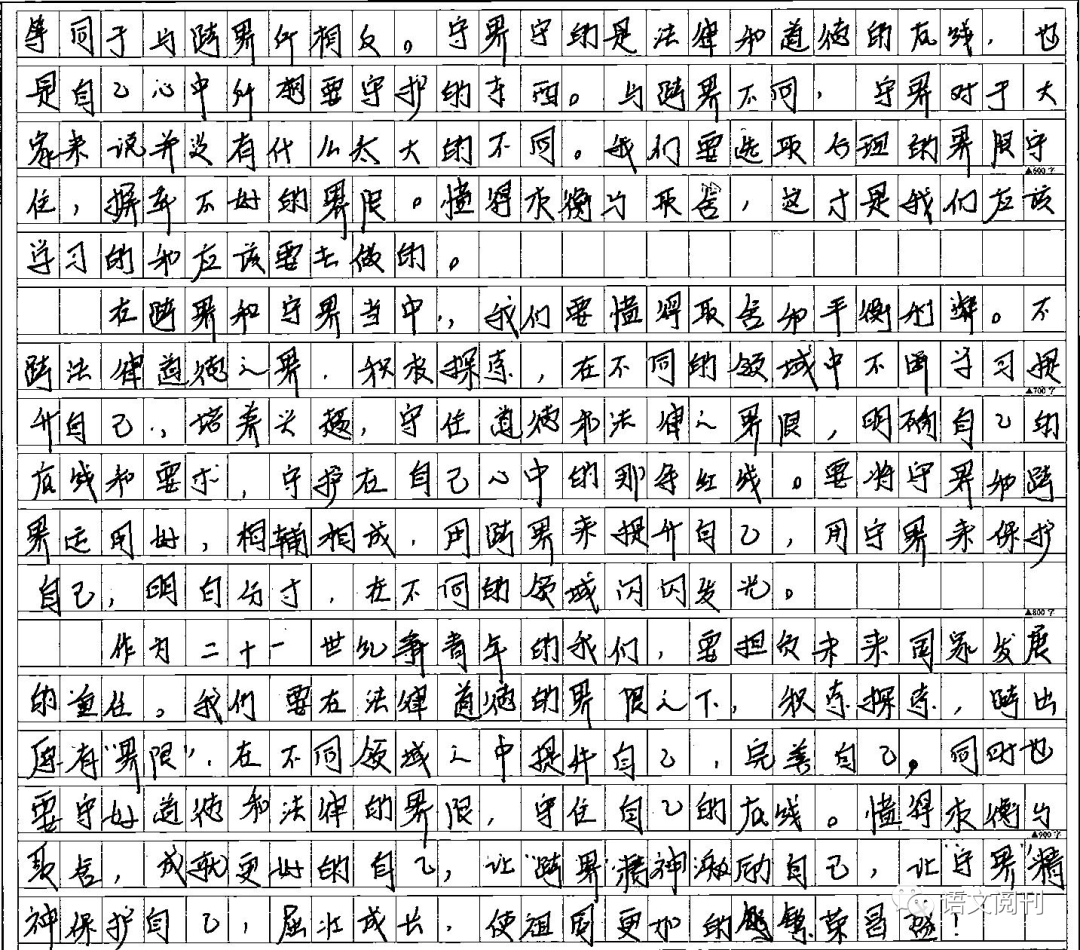 等同于与跨界所相反。守界守的是法律和道德的底线，也
是自己心中所想要守护的东西。与跨界不同，守界对于大
家来说并没有什么太大的不同。我们要选取合理的界限守
▲600字
住，摒弃不好的界限。懂得衡与取舍，这才是我们应该
学习的和应该要去做的。
在跨界和守界当中，我们要懂得取舍和平衡利弊。不
跨法律道德之界，积极探索，在不同的领域中不断学习提
▲700字
升自己，培养兴趣，守住道德和法律之界限，明确自己的
底线和要求，守护在自己心中的那条红线。要将守界和跨
界运用好，相辅相成，用跨界来提升自己，用守界来保护
自己，明白分寸，在不同的领域闪闪发光。
▲800字
作为二十一世纪青年的我们，要担负未来国家发展
的重任。我们要在法律道德的界限之下，积索探索，跨出
原有“界限”，在不同领域之中提升自己，完善自己，同时也
要守好道德和法律的界限，守住自己的底线。懂得衡与
▲900字
取舍，成就更好的自己，让“跨界”精神激励自己，让“守界”精
神保护自己，茁壮成长，使祖国更加的繁荣昌盛！
语文阅刊